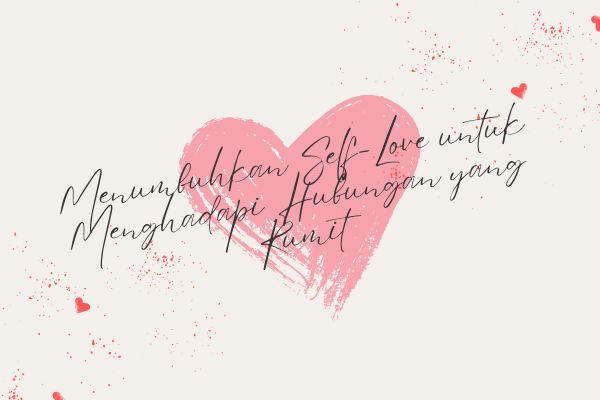 Menumbuhkan Self-Love untuk
Menghadapi Hubungan yang
Rumit